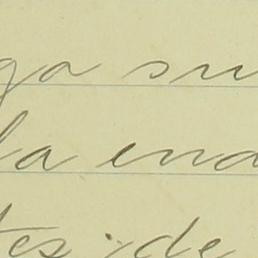 ga su
la end
tes de